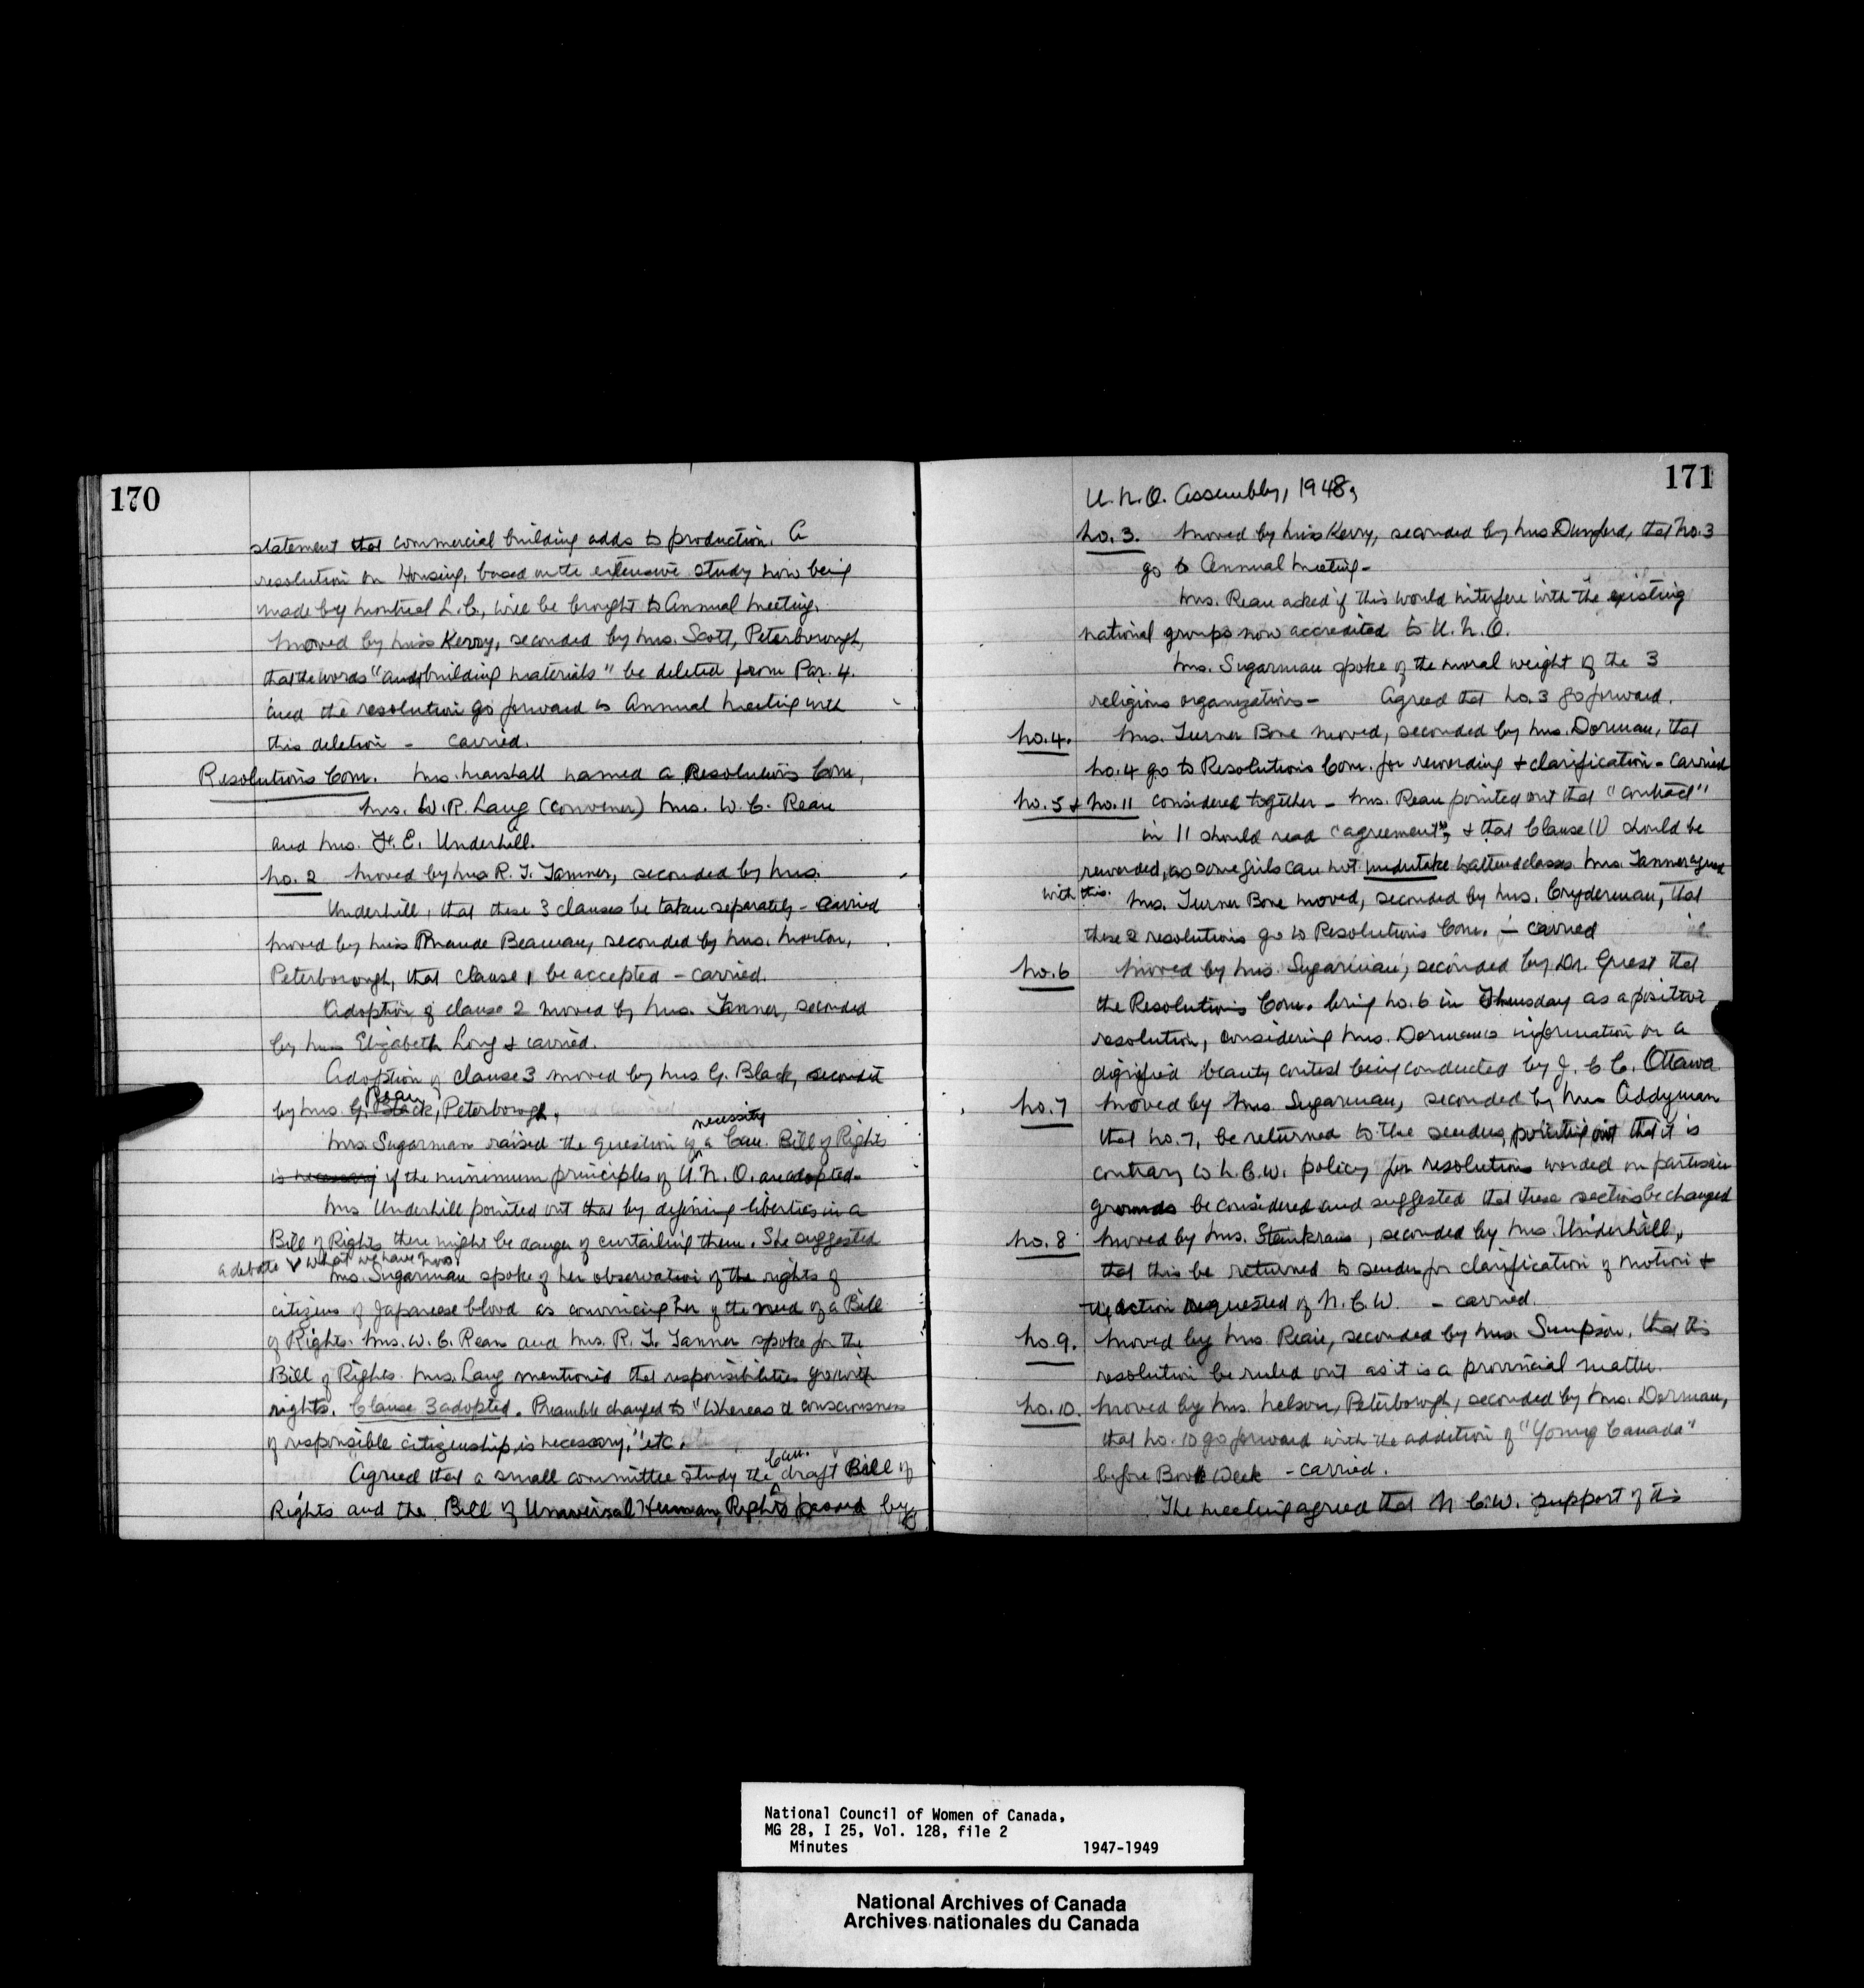 170
statement that commercial building adds to production. A
resolution on Housing, based on the extensive study now being
made by Montreal L.C., will be brought to Annual Meeting.
Moved by Miss Kerry, seconded by Mrs. Scott, Peterborough,
that the words "and building materials" be deleted from Par. 4.
and the resolution go forward to Annual Meeting with
this deletion - carried.
Resolutions Com. Mrs. Marshall named a Resolutions Com,
Mrs. W.R. Lang (convener) Mrs. W.C. Rean
and Mrs. F.E. Underhill.
No. 2 Moved by Mrs R.F. Tanner, seconded by Mrs.
Underhill, that these 3 clauses be taken separately - carried
Moved by Miss Maude Beaman, seconded by Mrs. Morton,
Peterborough, that clause 1 be accepted - carried.
Adoption of clause 2 moved by Mrs. Tanner, seconded
by Miss Elizabeth Long & carried.
Adoption of clause 3 moved by Mrs G. Black, seconded
Rean
by Mrs. G. Black, Peterborough.
necessity
Mrs Sugarman raised the question of a Can. Bill of Rights
is necessary if the minimum principles of U.N.O. are adopted.
Mrs Underhill pointed out that by defining liberties in a
Bill of Rights there might be danger of curtailing them. She suggested
a debate what we have now.
Mrs. Sugarman spoke of her observation of the rights of
citizens of Japanese blood as convincing her of the need of a Bill
of Rights. Mrs. W.C. Rean and Mrs. R.F. Tanner spoke for the
Bill of Rights. Mrs. Lang mentioned that responsibilities go with
rights. Clause 3 adopted. Preamble changed to "Whereas a consciousness
of responsible citizenship is necessary," etc.
Can.
Agreed that a small committee study the draft Bill of
Rights and the Bill of Universal Human Rights passed by
171
U.N.O. Assembly, 1948,
No. 3. Moved by Miss Kerry, seconded by Mrs Durnford, that No. 3
go to Annual Meeting-
Mrs. Rean asked if this would interfere with the existing
national groups now accredited to U.N.O.
Mrs. Sugarman spoke of the moral weight of the 3
religious organizations - Agreed that No. 3 go forward.
No. 4. Mrs. Turner Bone moved, seconded by Mrs. Dorman, that
No. 4 go to Resolutions Com. for rewording & clarification - carried
No. 5 & No. 11 considered together - Mrs. Rean pointed out that "contract"
in 11 should read "agreement", & that Clause (1) should be
reworded, as some girls can not undertake to attend classes. Mrs. Tanner agreed
with this. Mrs. Turner Bone moved, seconded by Mrs. Cryderman, that
these 2 resolutions go to Resolutions Com. - carried
No. 6 Moved by Mrs. Sugarman, seconded by Dr. Guest that
the Resolutions Com. bring No. 6 in Thursday as a positive
resolution, considering Mrs. Dorman's information on a
dignified beauty contest being conducted by J.C.C. Ottawa
No. 7 Moved by Mrs. Sugarman, seconded by Mrs Addyman
that No. 7, be returned to the sender, pointing out that it is
contrary to N.C.W. policy for resolutions worded on partisan
grounds be considered and suggested that these sections be changed
No. 8 Moved by Mrs. Steinkraus, seconded by Mrs. Underhill,
that this be returned to sender for clarification of motion &
the action requested of N.C.W. - carried.
No. 9. Moved by Mrs. Rean, seconded by Mrs. Simpson, that this
resolution be ruled out as it is a provincial matter.
No. 10. Moved by Mrs. Nelson, Peterborough, seconded by Mrs. Dorman,
that No. 10 go forward with the addition of "Young Canada"
before Book Week - carried.
The meeting agreed that N.C.W. support of this
National Council of Women of Canada,
MG 28, I 25, Vol. 128, file 2
Minutes 1947-1949
National Archives of Canada
Archives nationales du Canada